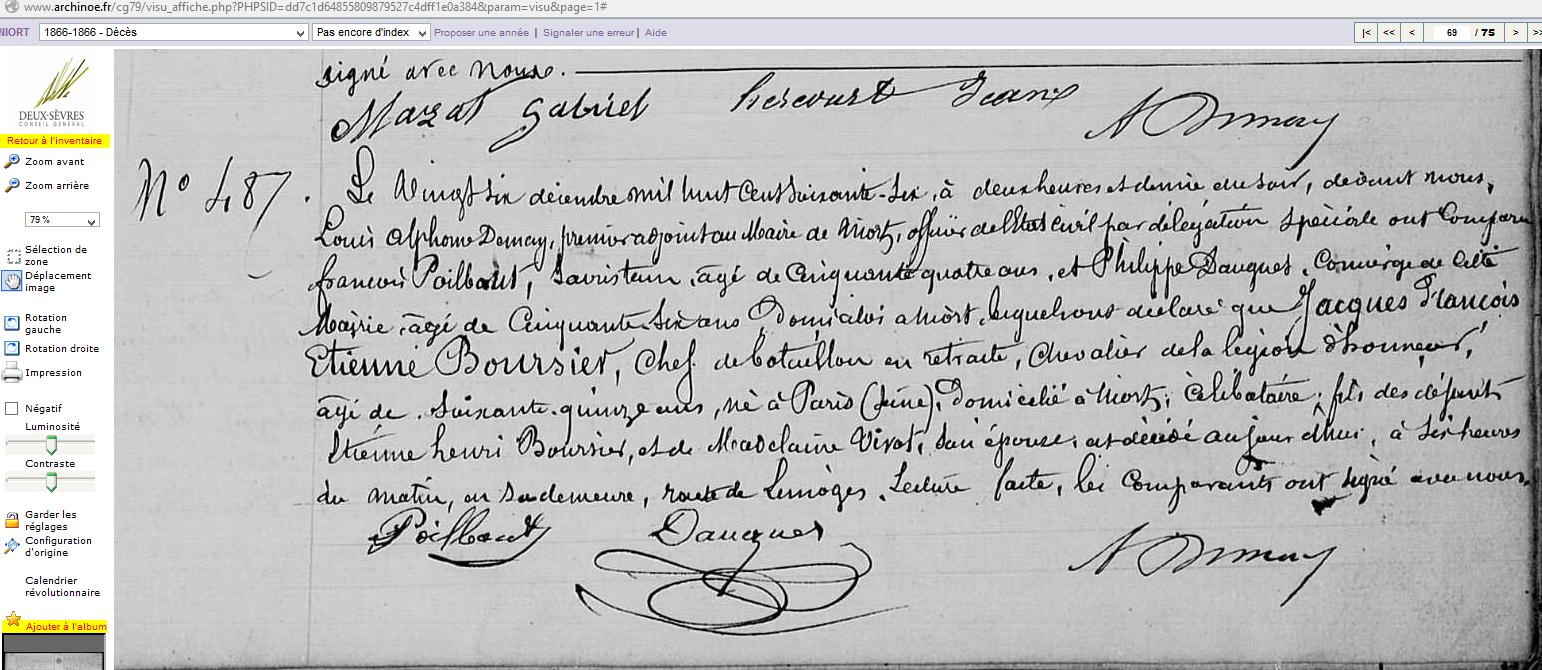 www.archinoe.fr/cg79/visu_affiche.php?PHPSID=dd7c1d64855809879527c4dff1e0a384&param=visu&page=1#
NIORT 1866-1866 - Décès Pas encore d'index Proposer une année | Signaler une erreur | Aide |< << < 69 / 75 > >>
DEUX-SÈVRES
CONSEIL GÉNÉRAL
Retour à l'inventaire
Zoom avant
Zoom arrière
79 %
Sélection de
zone
Déplacement
image
Rotation
gauche
Rotation droite
Impression
Négatif
Luminosité
Contraste
Garder les
réglages
Configuration
d'origine
Calendrier
révolutionnaire
Ajouter à l'album
signé avec nous.
Mazat Gabriel
A Demay
N° 487. Le vingt six décembre mil huit cent soixante-six, à deux heures et demie du soir, devant nous,
Louis Alphonse Demay, premier adjoint au Maire de Niort, officier de l'État civil par délégation spéciale ont comparu
françois Poilbout, Sacristain, âgé de cinquante quatre ans, et Philippe Dauques, Concierge de cette
Mairie, âgé de cinquante six ans, Domiciliés à Niort, lesquels ont déclaré que Jacques François
Etienne Boursier, Chef de bataillon en retraite, Chevalier de la légion d'honneur,
âgé de soixante-quinze ans, né à Paris (Seine), Domicilié à Niort, célibataire, fils des défunts
Etienne henri Boursier, et de Madelaine Virot, son épouse, est décédé aujourd'hui, à six heures
du matin, en sa demeure, route de Limoges. Lecture faite, les comparants ont signé avec nous.
Poilbout Daucques A Demay